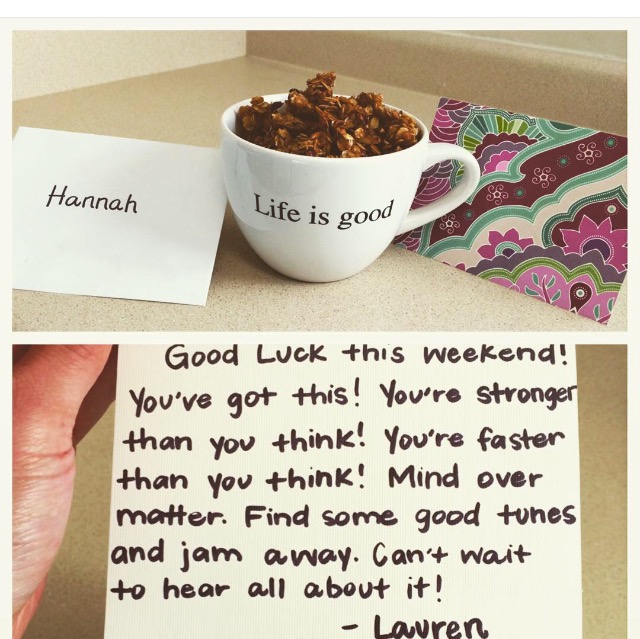 Hannah
Life is good
Good Luck this weekend!
You've got this! You're stronger
than you think! You're faster
than you think! Mind over
matter. Find some good tunes
and jam away. Can't wait
to hear all about it!
- Lauren